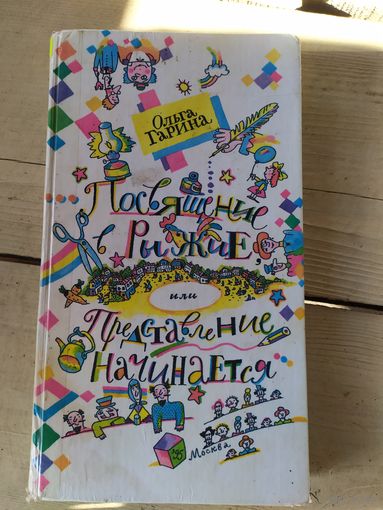 Ольга
Гарина
Посвящение
в Рыжие,
или
Представление
начинается
Москва